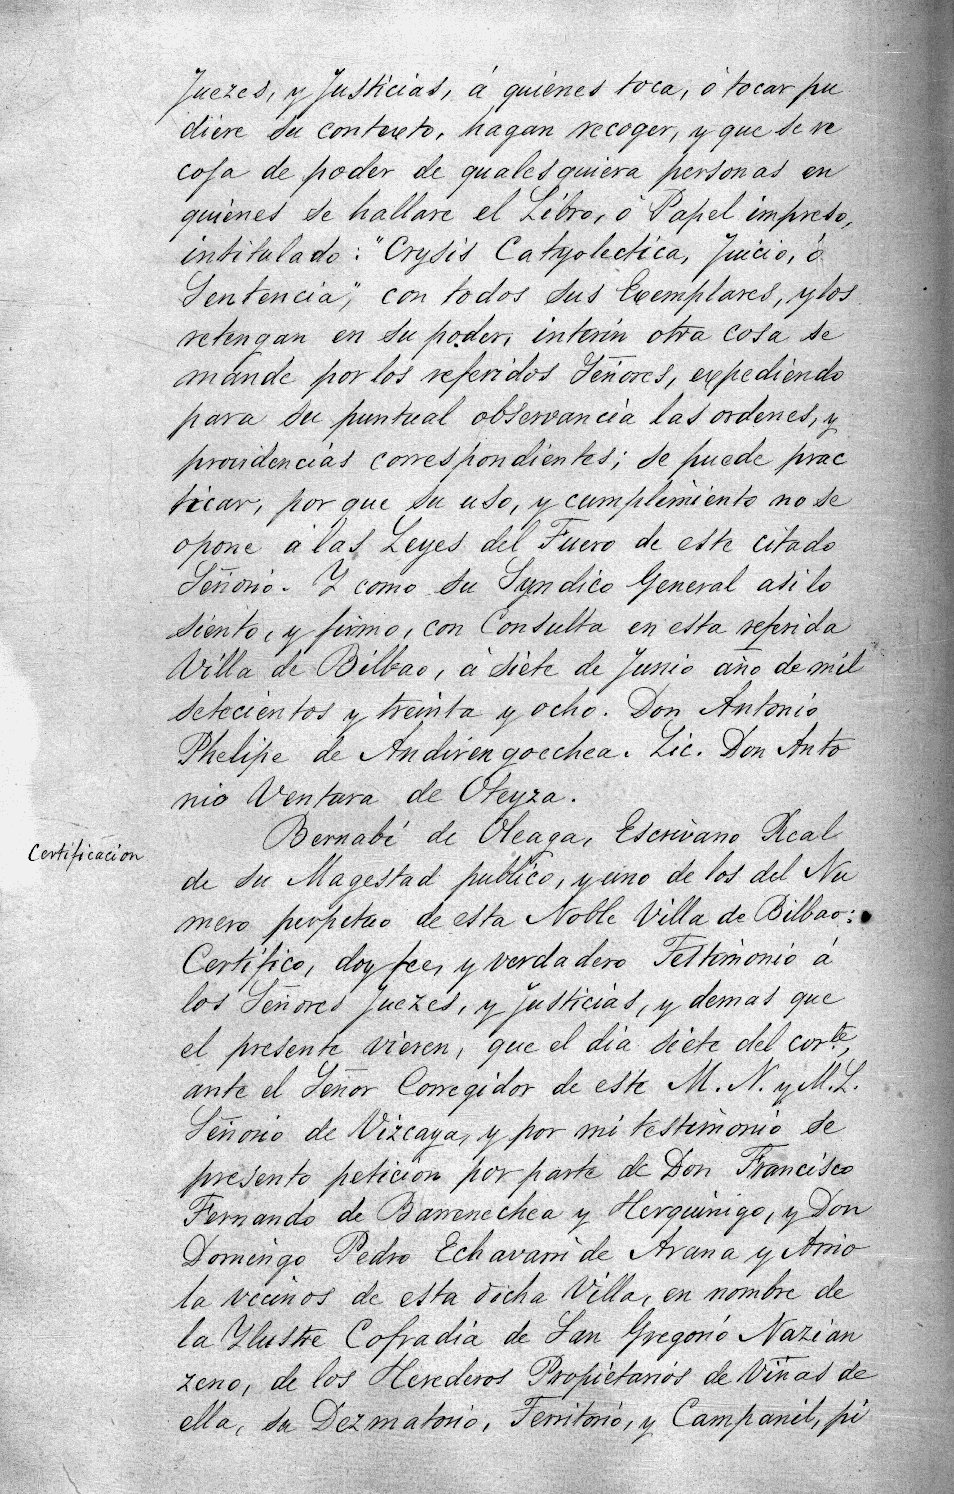 Juezes, y Justicias, á quiénes toca, ó tocar pu
diere su contexto, hagan recoger, y que se re
coja de poder de qualesquiera personas en
quiénes se hallare el Libro, ó Papel impreso,
intitulado: "Crysis Catyolectica, Juicio, ó
Sentencia", con todos sus Exemplares, y los
retengan en su poder, interin otra cosa se
mande por los referidos Señores, expediendo
para su puntual observancia las ordenes, y
providencias correspondientes; se puede prac
ticar, por que su uso, y cumplimiento no se
opone á las Leyes del Fuero de este citado
Señorio. Y como su Syndico General asi lo
siento, y firmo, con Consulta en esta referida
Villa de Bilbao, á siete de Junio año de mil
setecientos y treinta y ocho. Don Antonio
Phelipe de Andirengoechea. Lic. Don Anto
nio Ventura de Oleyza.
Bernabé de Oleaga, Escrivano Real
Certificacion
de su Magestad publico, y uno de los del Nu
mero perpetuo de esta Noble Villa de Bilbao:
Certifico, doy fee, y verdadero Testimonio á
los Señores Juezes, y Justicias, y demas que
el presente vieren, que el dia siete del corte,
ante el Señor Corregidor de este M. N. y M. L.
Señorio de Vizcaya, y por mi testimonio se
presento peticion por parte de Don Francisco
Fernando de Barrenechea y Herquinigo, y Don
Domingo Pedro Echavarri de Arana y Arrio
la vecinos de esta dicha Villa, en nombre de
la Ylustre Cofradia de San Gregorio Nazian
zeno, de los Herederos Propietarios de Viñas de
ella, su Dezmatorio, Territorio, y Campanil, pi